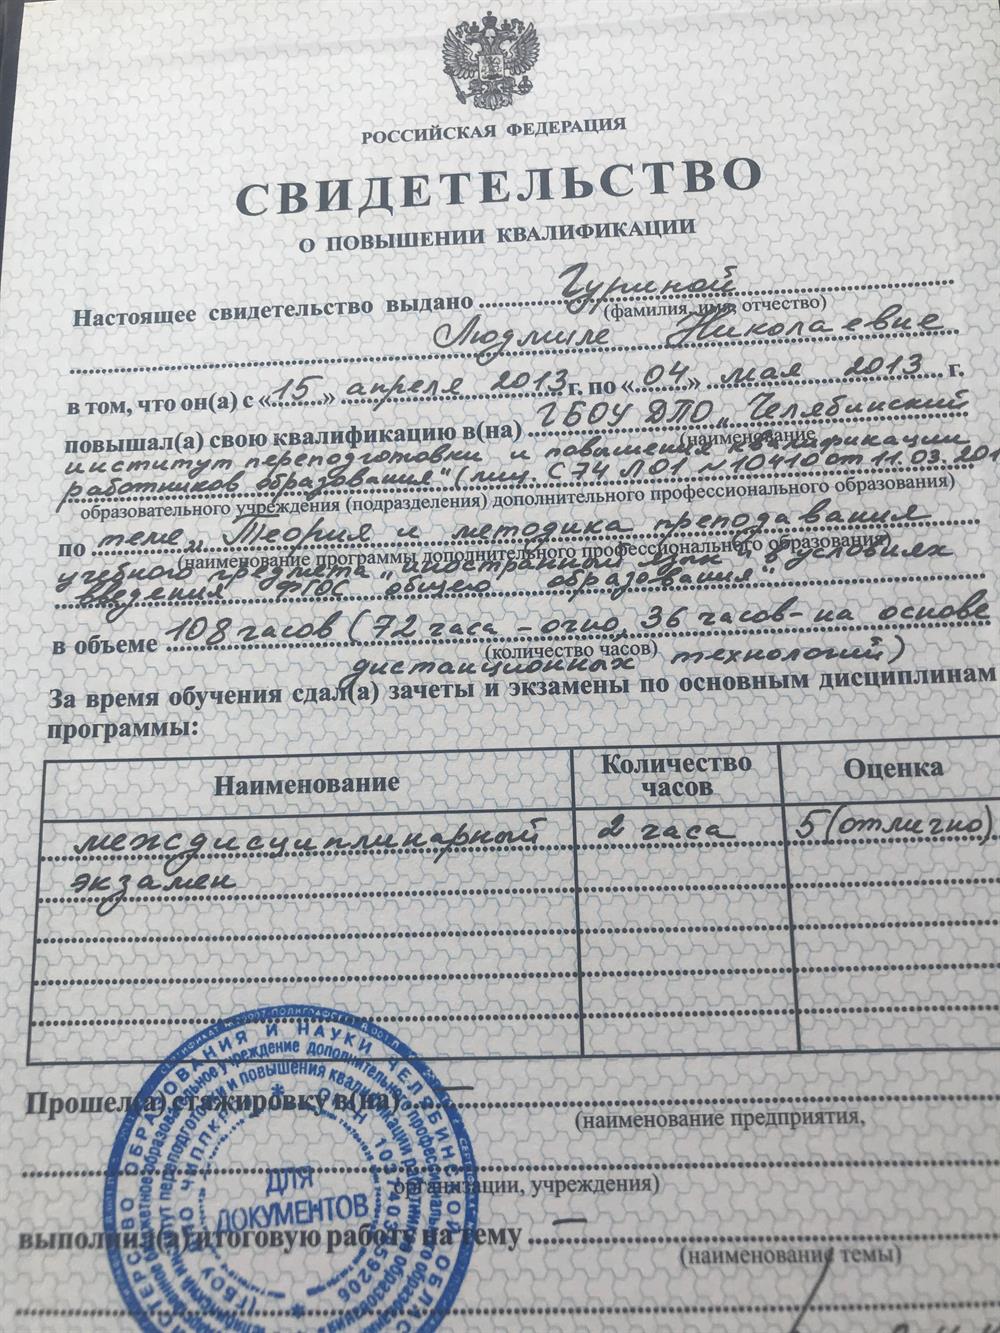 РОССИЙСКАЯ ФЕДЕРАЦИЯ
СВИДЕТЕЛЬСТВО
О ПОВЫШЕНИИ КВАЛИФИКАЦИИ
Настоящее свидетельство выдано Гуриной
(фамилия, имя, отчество)
Людмиле Николаевне
в том, что он(а) с «15» апреля 2013 г. по «04» мая 2013 г.
повышал(а) свою квалификацию в(на) ГБОУ ДПО „Челябинский
(наименование
институт переподготовки и повышения квалификации
работников образования" (лиц. С74 Л01 №10410 от 11.03.201
образовательного учреждения (подразделения) дополнительного профессионального образования)
по теме „Теория и методика преподавания
(наименование программы дополнительного профессионального образования)
учебного предмета „иностранный язык" в условиях
введения ФГОС общего образования"
в объеме 108 часов (72 часа – очно, 36 часов - на основе
(количество часов)
дистанционных технологий)
За время обучения сдал(а) зачеты и экзамены по основным дисциплинам
программы:
Наименование Количество часов Оценка
междисциплинарный 2 часа 5 (отлично).
экзамен
Прошел(а) стажировку в(на) —
(наименование предприятия,
организации, учреждения)
выполнил(а) итоговую работу на тему —
(наименование темы)
ДЛЯ
ДОКУМЕНТОВ